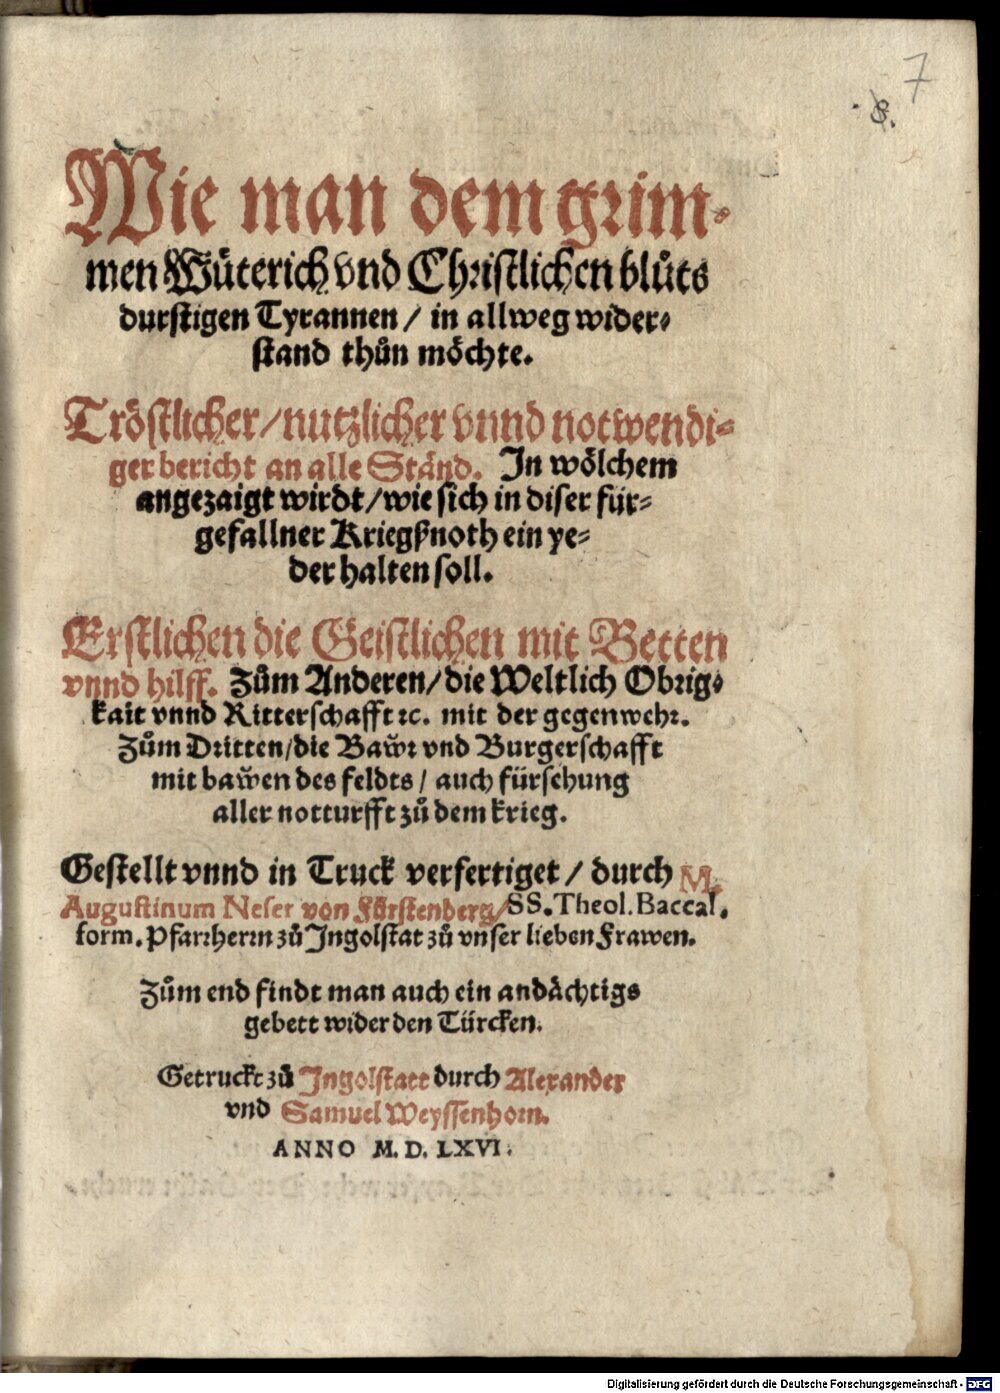 7
8.
Wie man dem grim⸗
men Wüterich vnd Christlichen blůts
durstigen Tyrannen / in allweg wider⸗
stand thůn möchte.
Tröstlicher / nutzlicher vnnd notwendi⸗
ger bericht an alle Ständ. In wölchem
angezaigt wirdt / wie sich in diser für⸗
gefallner Kriegßnoth ein ye⸗
der halten soll.
Erstlichen die Geistlichen mit Betten
vnnd hilff. Zům Anderen / die Weltlich Obrig⸗
kait vnnd Ritterschafft ꝛc. mit der gegenwehr.
Zům Dritten / die Bawr̊ vnd Burgerschafft
mit baẘen des feldts / auch fürsehung
aller notturfft zů dem krieg.
Gestellt vnnd in Truck verfertiget / durch M.
Augustinum Neser von Fürstenberg / SS. Theol. Baccal.
form. Pfarrherrn zů Ingolstat zů vnser lieben Frawen.
Zům end findt man auch ein andächtigs
gebett wider den Türcken.
Getruckt zů Ingolstatt durch Alexander
vnd Samuel Weyssenhorn.
ANNO M. D. LXVI.
Digitalisierung gefördert durch die Deutsche Forschungsgemeinschaft - DFG